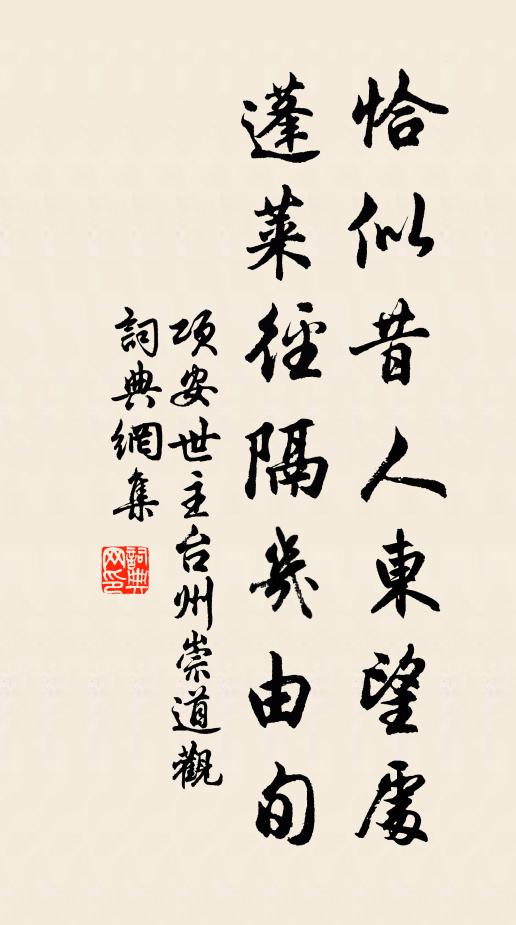 恰似昔人東望處
蓬萊徑隔幾由旬
項安世主台州崇道觀
詞典網集
詞典網印